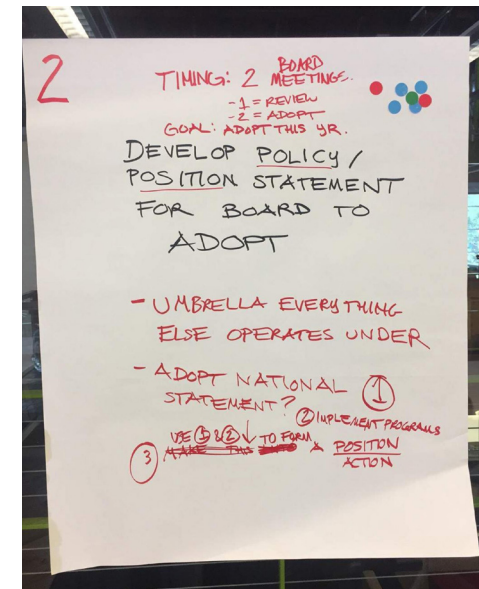 2
TIMING: 2 BOARD
MEETINGS.
- 1 = REVIEW
- 2 = ADOPT
GOAL: ADOPT THIS YR.
DEVELOP POLICY /
POSITION STATEMENT
FOR BOARD TO
ADOPT
- UMBRELLA EVERYTHING
ELSE OPERATES UNDER
- ADOPT NATIONAL
STATEMENT? 1
2 IMPLEMENT PROGRAMS
USE 1 & 2 ↓ TO FORM
3 MAKE THIS INTO A POSITION
ACTION